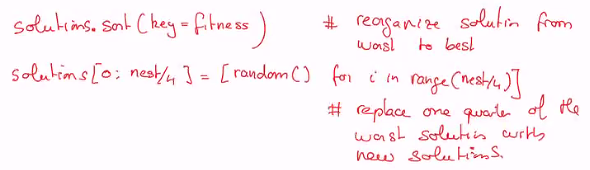 solutions.sort(key=fitness) # reorganize solutin from
worst to best
solutions[0: nest/4] = [random() for i in range(nest/4)]
# replace one quarter of the
worst solution with
new solutions.